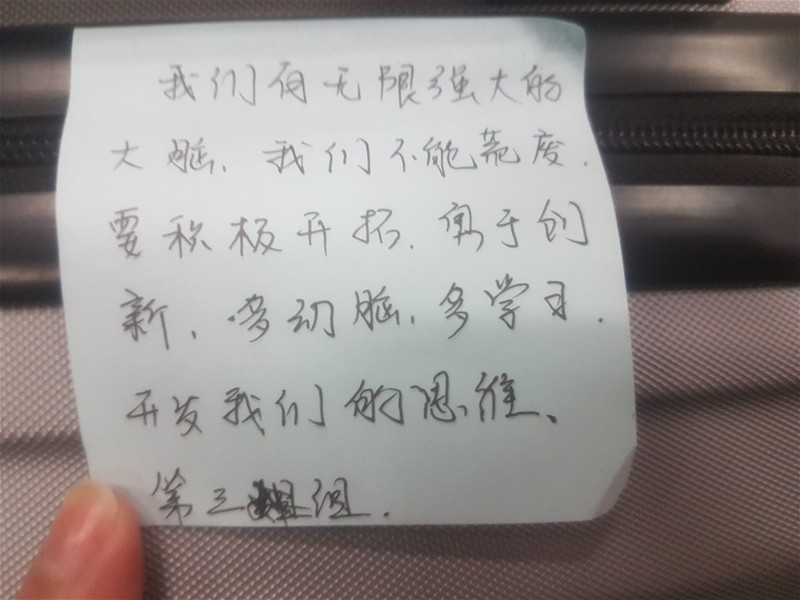 我们有无限强大的
大脑，我们不能荒废．
要积极开拓，勇于创
新，多动脑，多学习．
开发我们的思维、
第三组．